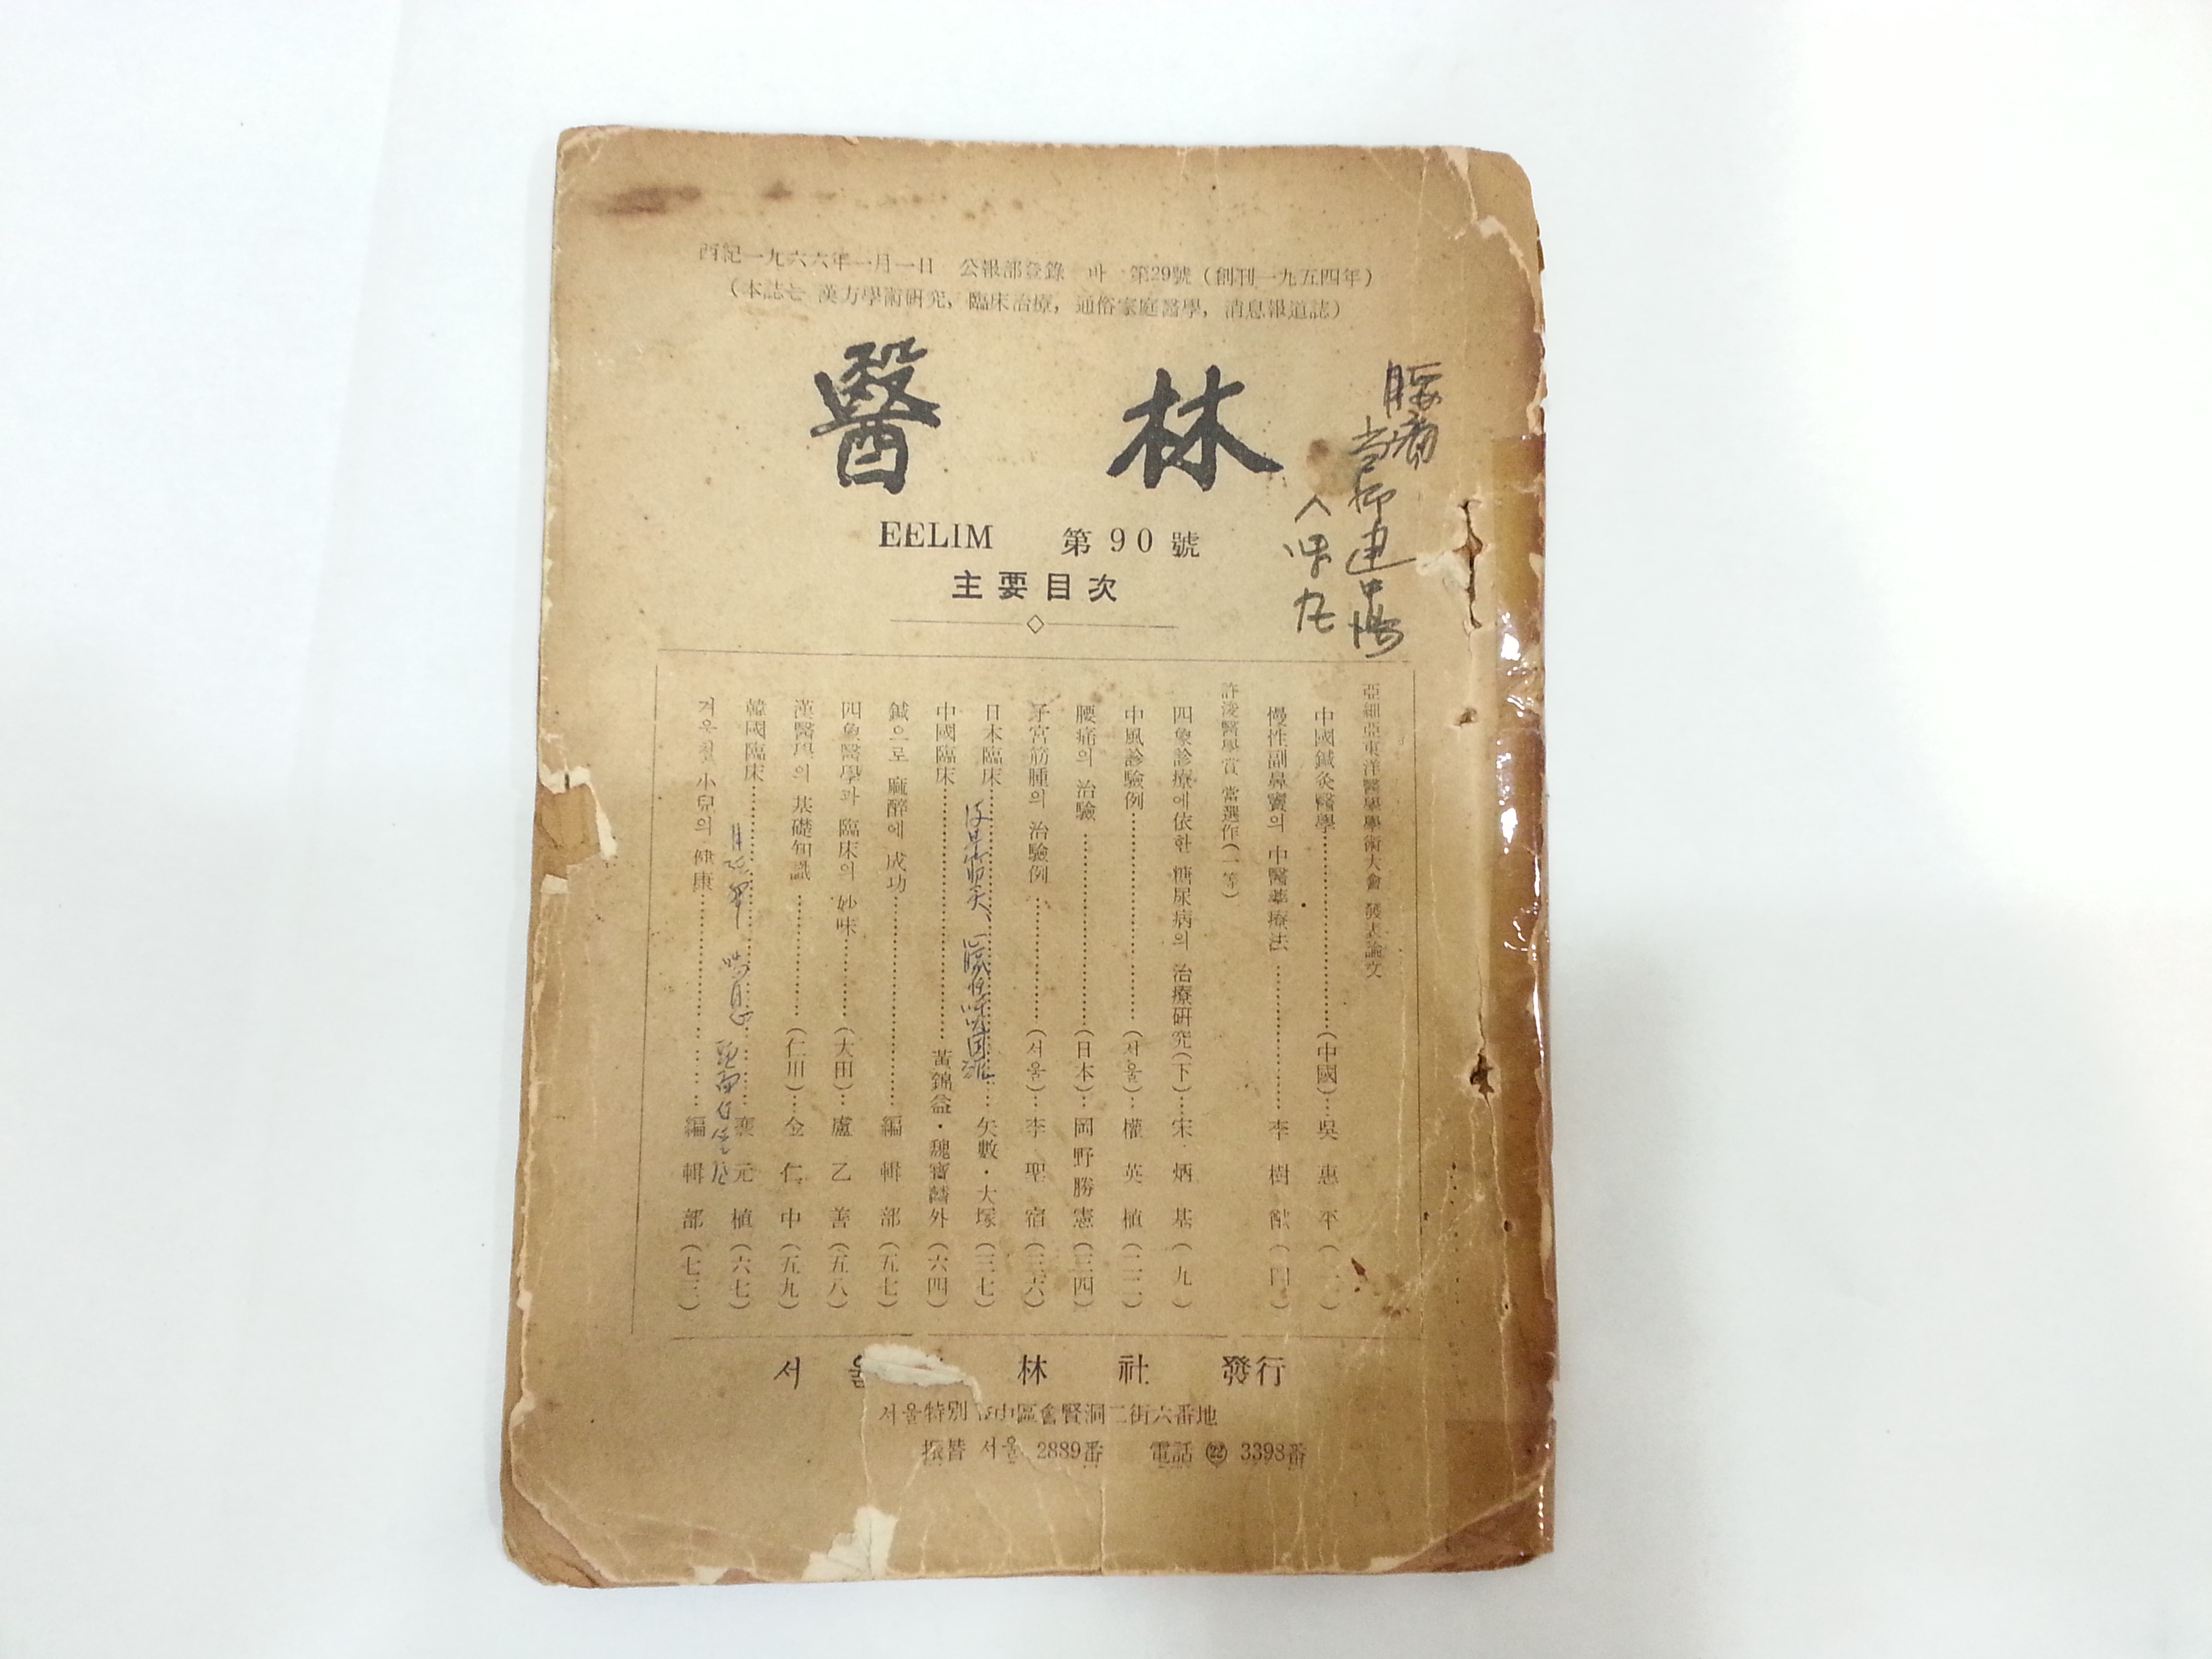 西紀一九六六年一月一日 公報部登錄 바 第29號 (創刊一九五四年)
(本誌는 漢方學術硏究, 臨床治療, 通俗家庭醫學, 消息報道誌)
醫林
EELIM 第90號
主要目次
腰痛
建中湯
八味丸
亞細亞東洋醫學學術大會 發表論文
中國鍼灸醫學……(中國)…吳惠平
慢性副鼻竇의 中醫藥療法……李樹猷
許浚醫學賞 當選作(一等)
四象診療에 依한 糖尿病의 治療硏究(下)…宋炳基(九)
中風診驗例……(서울)…權英植
腰痛의 治驗……(日本)…岡野勝憲(三四)
子宮筋腫의 治驗例……(서울)…李聖宿(三六)
日本臨床……矢數・大塚(三七)
中國臨床……黃錦益・魏寶麟外(六四)
鍼으로 麻醉에 成功……編輯部(五七)
四象醫學과 臨床의 妙味……(大田)…盧乙善(五八)
漢醫學의 基礎知識……(仁川)…金仁中(五九)
韓國臨床……裵元植(六七)
겨울철 小兒의 健康……編輯部(七三)
서울 林社 發行
서울特別 中區會賢洞二街六番地
振替 서울 2889番 電話 ㉒ 3398番